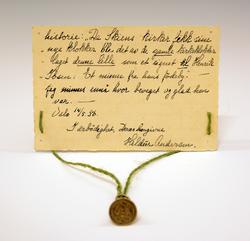 historie: "Da Skiens kirker fikk sine
nye klokker ble det av de gamle kirkeklokker
laget denne lille som ein signet til Henrik
Ibsen: Et minne fra hans fødeby. —
Jeg minnes ennå hvor beveget og glad han
var. —
Oslo 14/5.58.
I ærbødighet, Deres hengivne
Halduis Andersen.